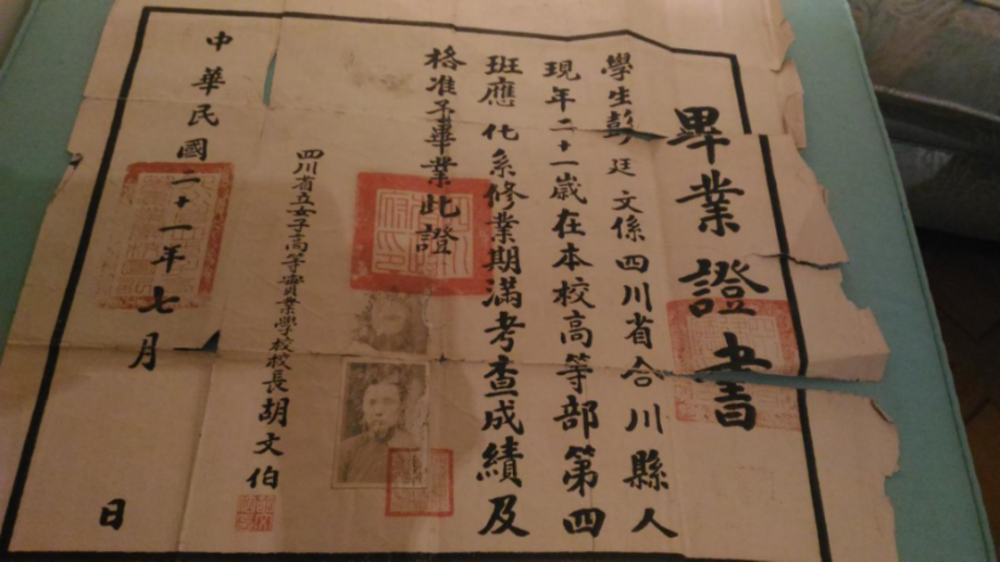 畢業證書
學生彭廷文係四川省合川縣人
現年二十一歲在本校高等部第四
班應化系修業期滿考查成績及
格准予畢業此證
四川省立女子高等實業學校校長胡文伯
中華民國二十一年七月 日